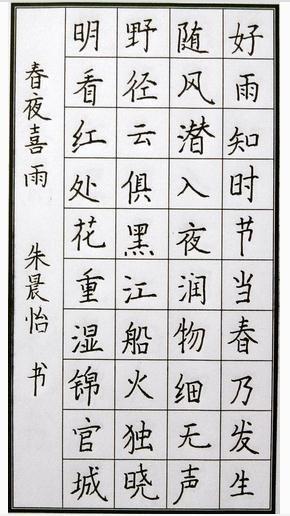 好雨知时节当春乃发生
随风潜入夜润物细无声
野径云俱黑江船火独晓
明看红处花重湿锦官城
春夜喜雨 朱晨怡 书